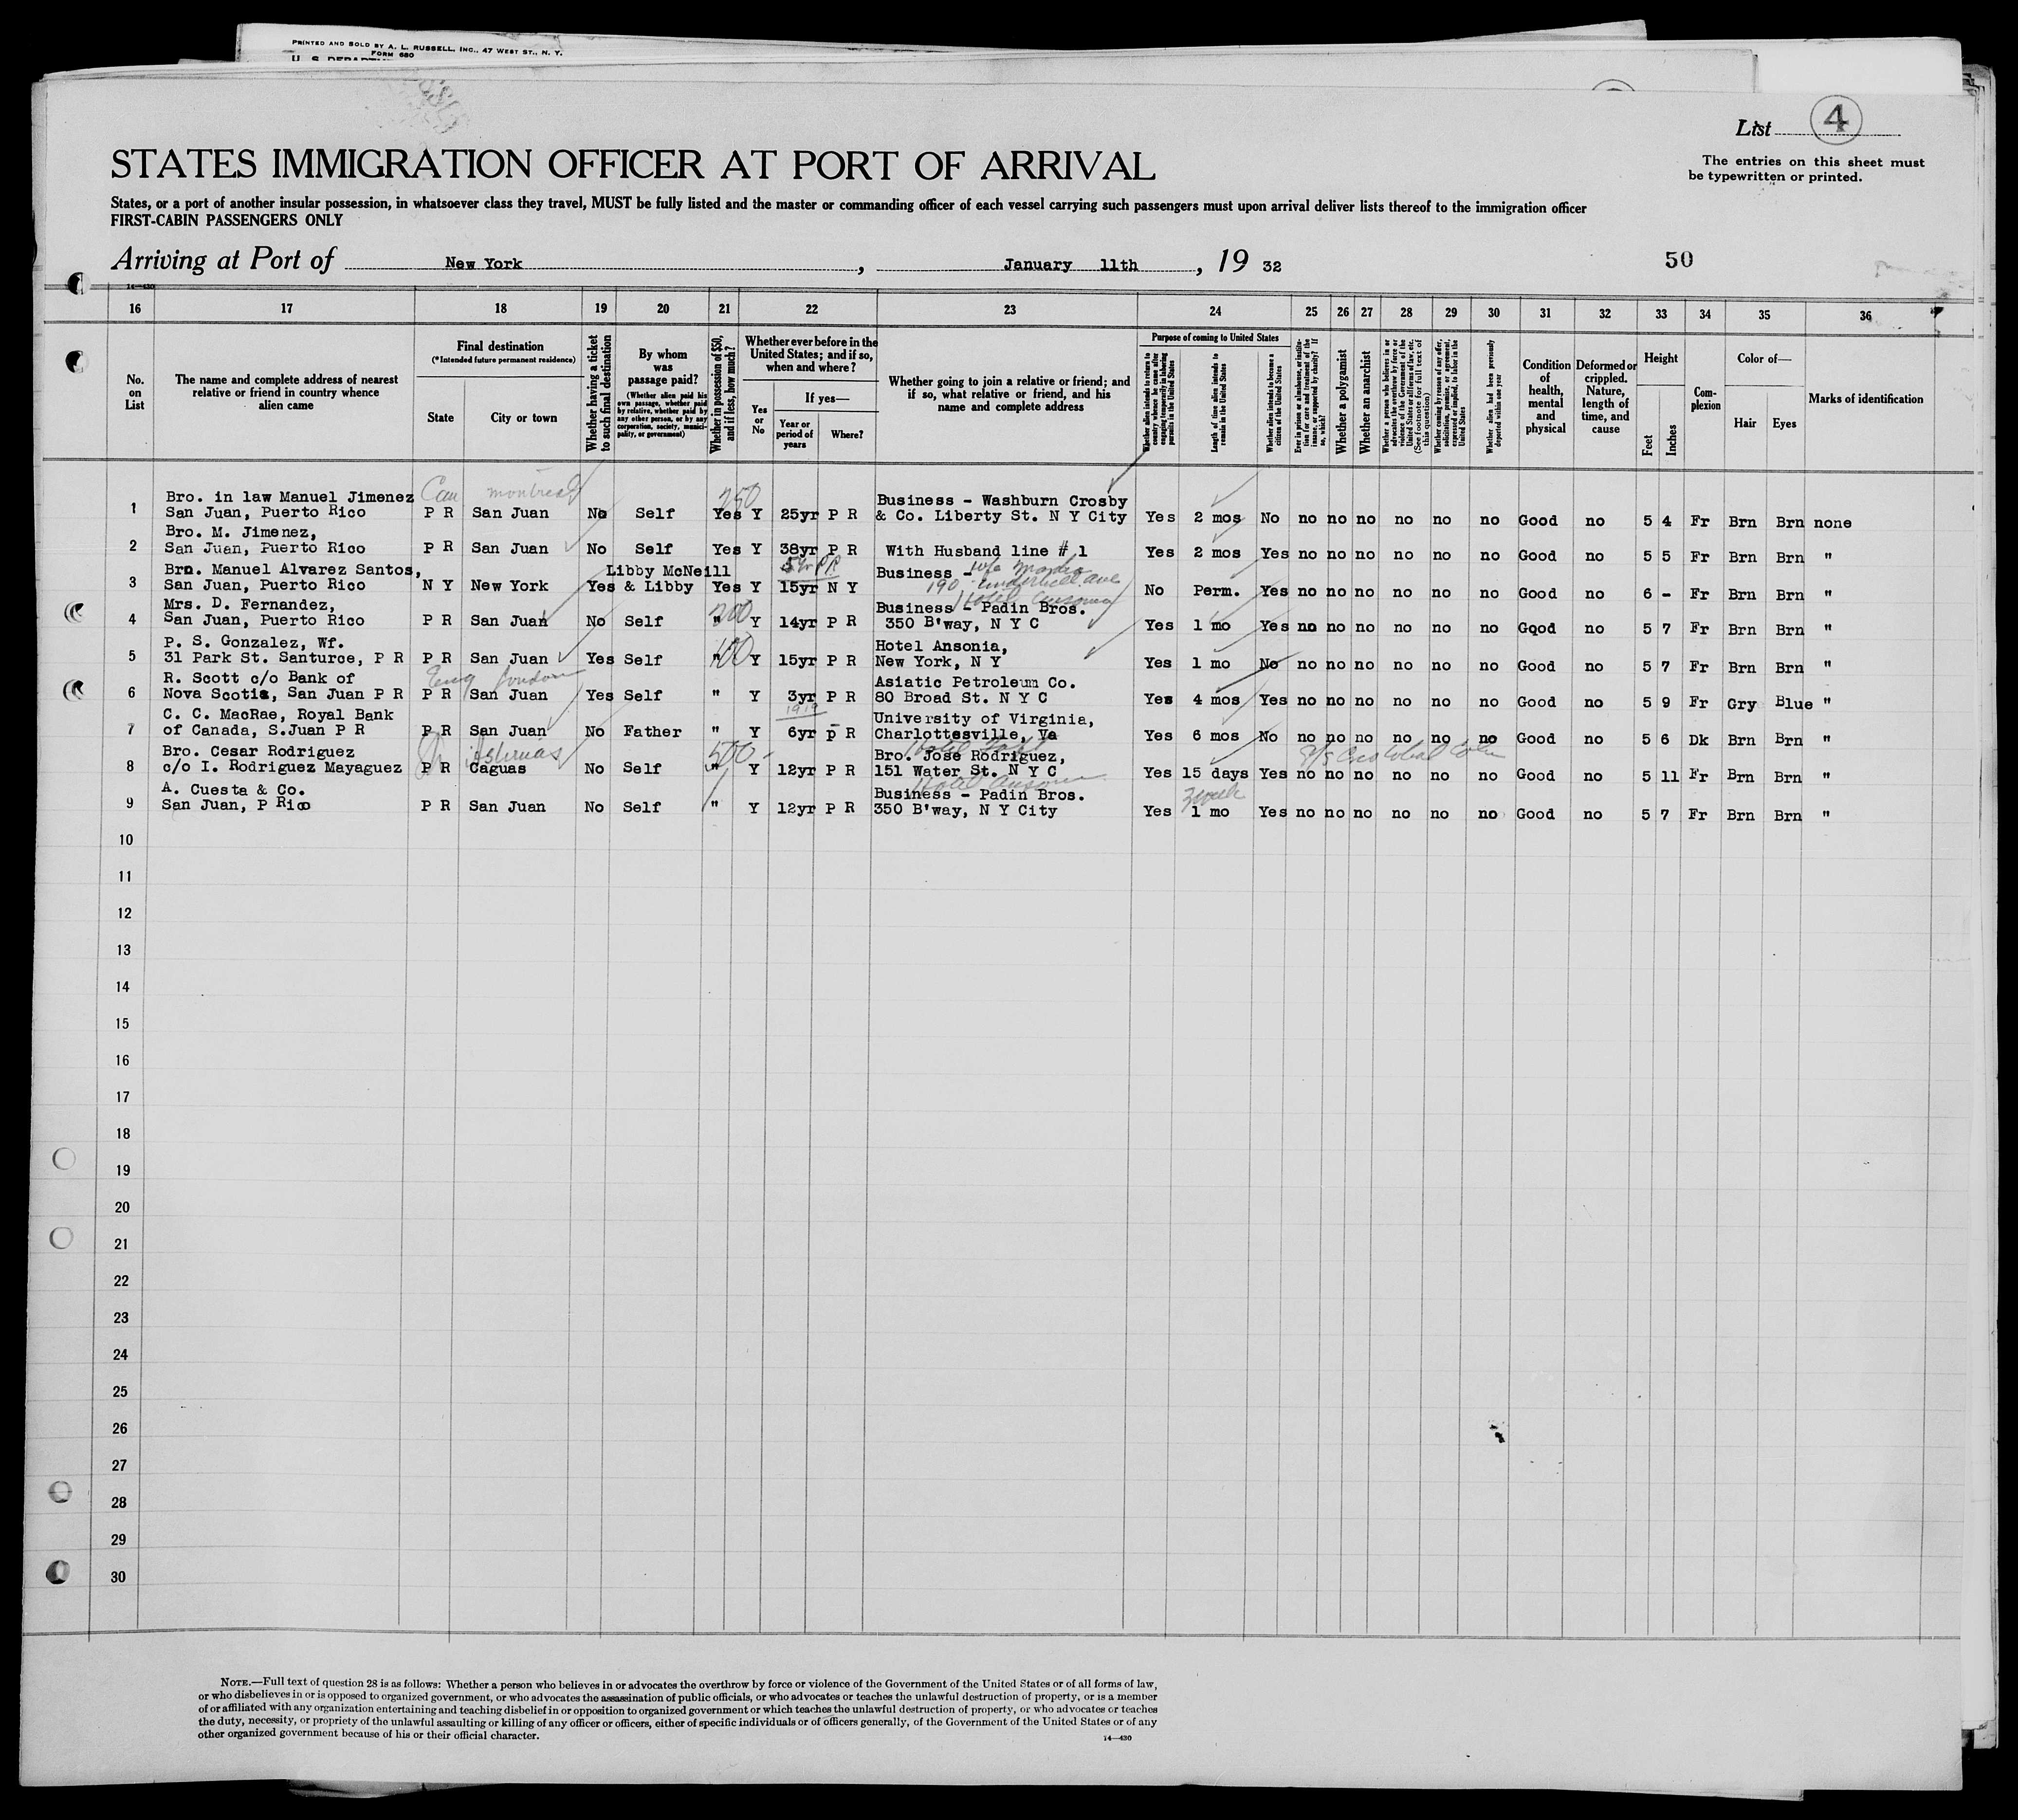 PRINTED AND SOLD BY A. L. RUSSELL, INC., 47 WEST ST., N. Y.
FORM 680
List 4
The entries on this sheet must
be typewritten or printed.
STATES IMMIGRATION OFFICER AT PORT OF ARRIVAL
States, or a port of another insular possession, in whatsoever class they travel, MUST be fully listed and the master or commanding officer of each vessel carrying such passengers must upon arrival deliver lists thereof to the immigration officer
FIRST-CABIN PASSENGERS ONLY
Arriving at Port of New York, January 11th, 19 32
50
14—430
16 17 18 19 20 21 22 23 24 25 26 27 28 29 30 31 32 33 34 35 36
No. on List
The name and complete address of nearest relative or friend in country whence alien came
Final destination
(*Intended future permanent residence)
State
City or town
Whether having a ticket to such final destination
By whom was passage paid?
(Whether alien paid his own passage, whether paid by relative, whether paid by any other person, or by any corporation, society, municipality, or government)
Whether in possession of $50, and if less, how much?
Whether ever before in the United States; and if so, when and where?
Yes or No
If yes—
Year or period of years
Where?
Whether going to join a relative or friend; and if so, what relative or friend, and his name and complete address
Purpose of coming to United States
Whether alien intends to return to country whence he came after engaging temporarily in laboring pursuits in the United States
Length of time alien intends to remain in the United States
Whether alien intends to become a citizen of the United States
Ever in prison or almshouse, or institution for care and treatment of the insane, or supported by charity? If so, which?
Whether a polygamist
Whether an anarchist
Whether a person who believes in or advocates the overthrow by force or violence of the Government of the United States or all forms of law, etc. (See footnote for full text of this question)
Whether coming by reason of any offer, solicitation, promise, or agreement, expressed or implied, to labor in the United States
Whether alien had been previously deported within one year
Condition of health, mental and physical
Deformed or crippled. Nature, length of time, and cause
Height
Feet
Inches
Complexion
Color of—
Hair
Eyes
Marks of identification
Can Montreal 250
Bro. in law Manuel Jimenez Business - Washburn Crosby
1 San Juan, Puerto Rico P R San Juan No Self Yes Y 25yr P R & Co. Liberty St. N Y City Yes 2 mos No no no no no no no Good no 5 4 Fr Brn Brn none
Bro. M. Jimenez,
2 San Juan, Puerto Rico P R San Juan No Self Yes Y 38yr P R With Husband line # 1 Yes 2 mos Yes no no no no no no Good no 5 5 Fr Brn Brn "
Bro. Manuel Alvarez Santos, Libby McNeill 5yr PR Business -
3 San Juan, Puerto Rico N Y New York Yes & Libby Yes Y 15yr N Y 190 Underhill ave No Perm. Yes no no no no no no Good no 6 - Fr Brn Brn "
Mrs. D. Fernandez, 200 Business - Padin Bros. Hotel Ansonia
4 San Juan, Puerto Rico P R San Juan No Self " Y 14yr P R 350 B'way, N Y C Yes 1 mo Yes no no no no no no Good no 5 7 Fr Brn Brn "
P. S. Gonzalez, Wf. 100 Hotel Ansonia,
5 31 Park St. Santurce, P R P R San Juan Yes Self " Y 15yr P R New York, N Y Yes 1 mo No no no no no no no Good no 5 7 Fr Brn Brn "
R. Scott c/o Bank of Eng London Asiatic Petroleum Co.
6 Nova Scotia, San Juan P R P R San Juan Yes Self " Y 3yr P R 80 Broad St. N Y C Yes 4 mos Yes no no no no no no Good no 5 9 Fr Gry Blue "
C. C. MacRae, Royal Bank 1919 University of Virginia,
7 of Canada, S.Juan P R P R San Juan No Father " Y 6yr p R Charlottesville, Va Yes 6 mos No no no no no no no Good no 5 6 Dk Brn Brn "
Bro. Cesar Rodriguez Sp Asturias 500 - Bro. Jose Rodriguez,
8 c/o I. Rodriguez Mayaguez P R Caguas No Self " Y 12yr P R 151 Water St. N Y C Yes 15 days Yes no no no no no no Good no 5 11 Fr Brn Brn "
A. Cuesta & Co. Hotel Business - Padin Bros.
9 San Juan, P Rico P R San Juan No Self " Y 12yr P R 350 B'way, N Y City Yes 1 mo Yes no no no no no no Good no 5 7 Fr Brn Brn "
10
11
12
13
14
15
16
17
18
19
20
21
22
23
24
25
26
27
28
29
30
NOTE.—Full text of question 28 is as follows: Whether a person who believes in or advocates the overthrow by force or violence of the Government of the United States or of all forms of law,
or who disbelieves in or is opposed to organized government, or who advocates the assassination of public officials, or who advocates or teaches the unlawful destruction of property, or is a member
of or affiliated with any organization entertaining and teaching disbelief in or opposition to organized government or which teaches the unlawful destruction of property, or who advocates or teaches
the duty, necessity, or propriety of the unlawful assaulting or killing of any officer or officers, either of specific individuals or of officers generally, of the Government of the United States or of any
other organized government because of his or their official character.
14—430